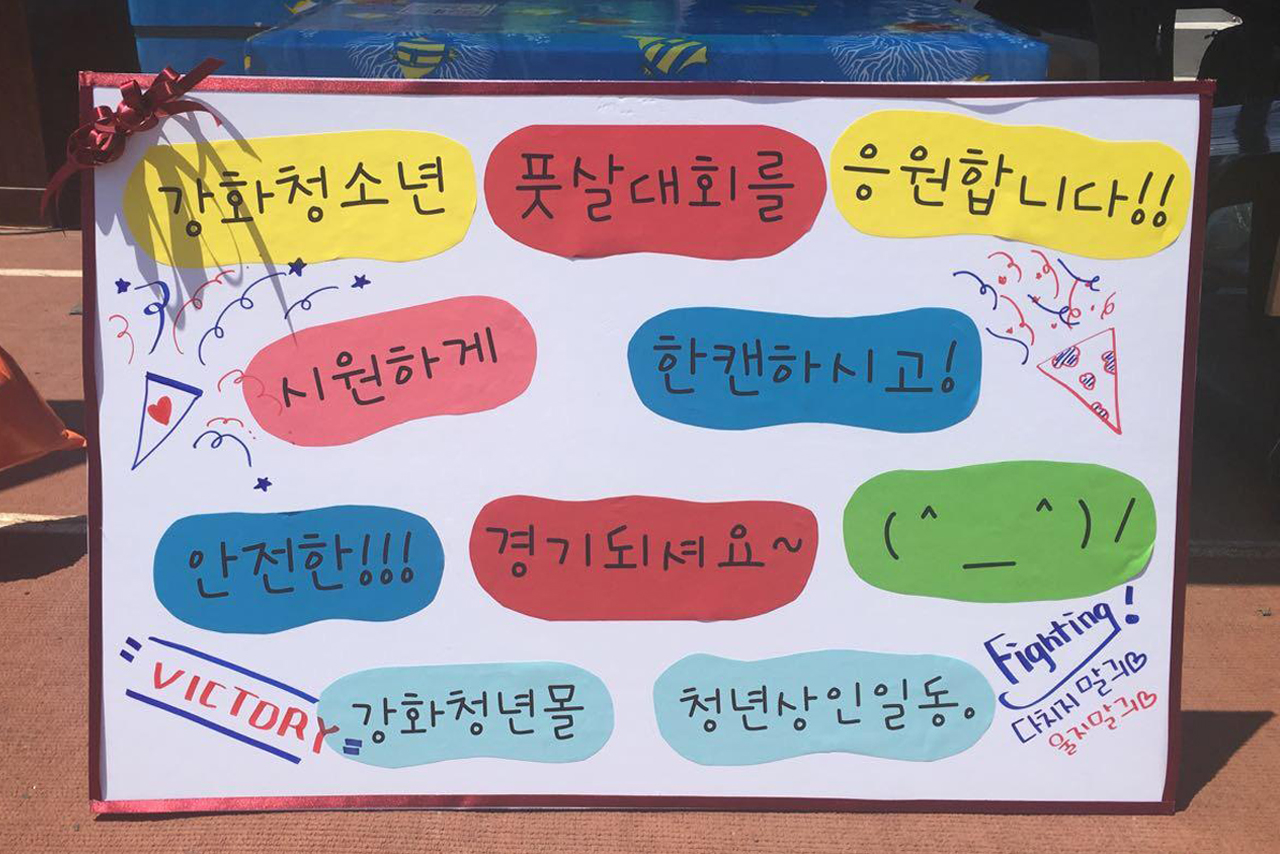 강화청소년 풋살대회를 응원합니다!!
시원하게 한캔하시고!
안전한!!! 경기되셔요~ (^__^)/
"VICTORY" 강화청년몰 청년상인일동。
Fighting!
다치지 말긔♡
울지말긔♡